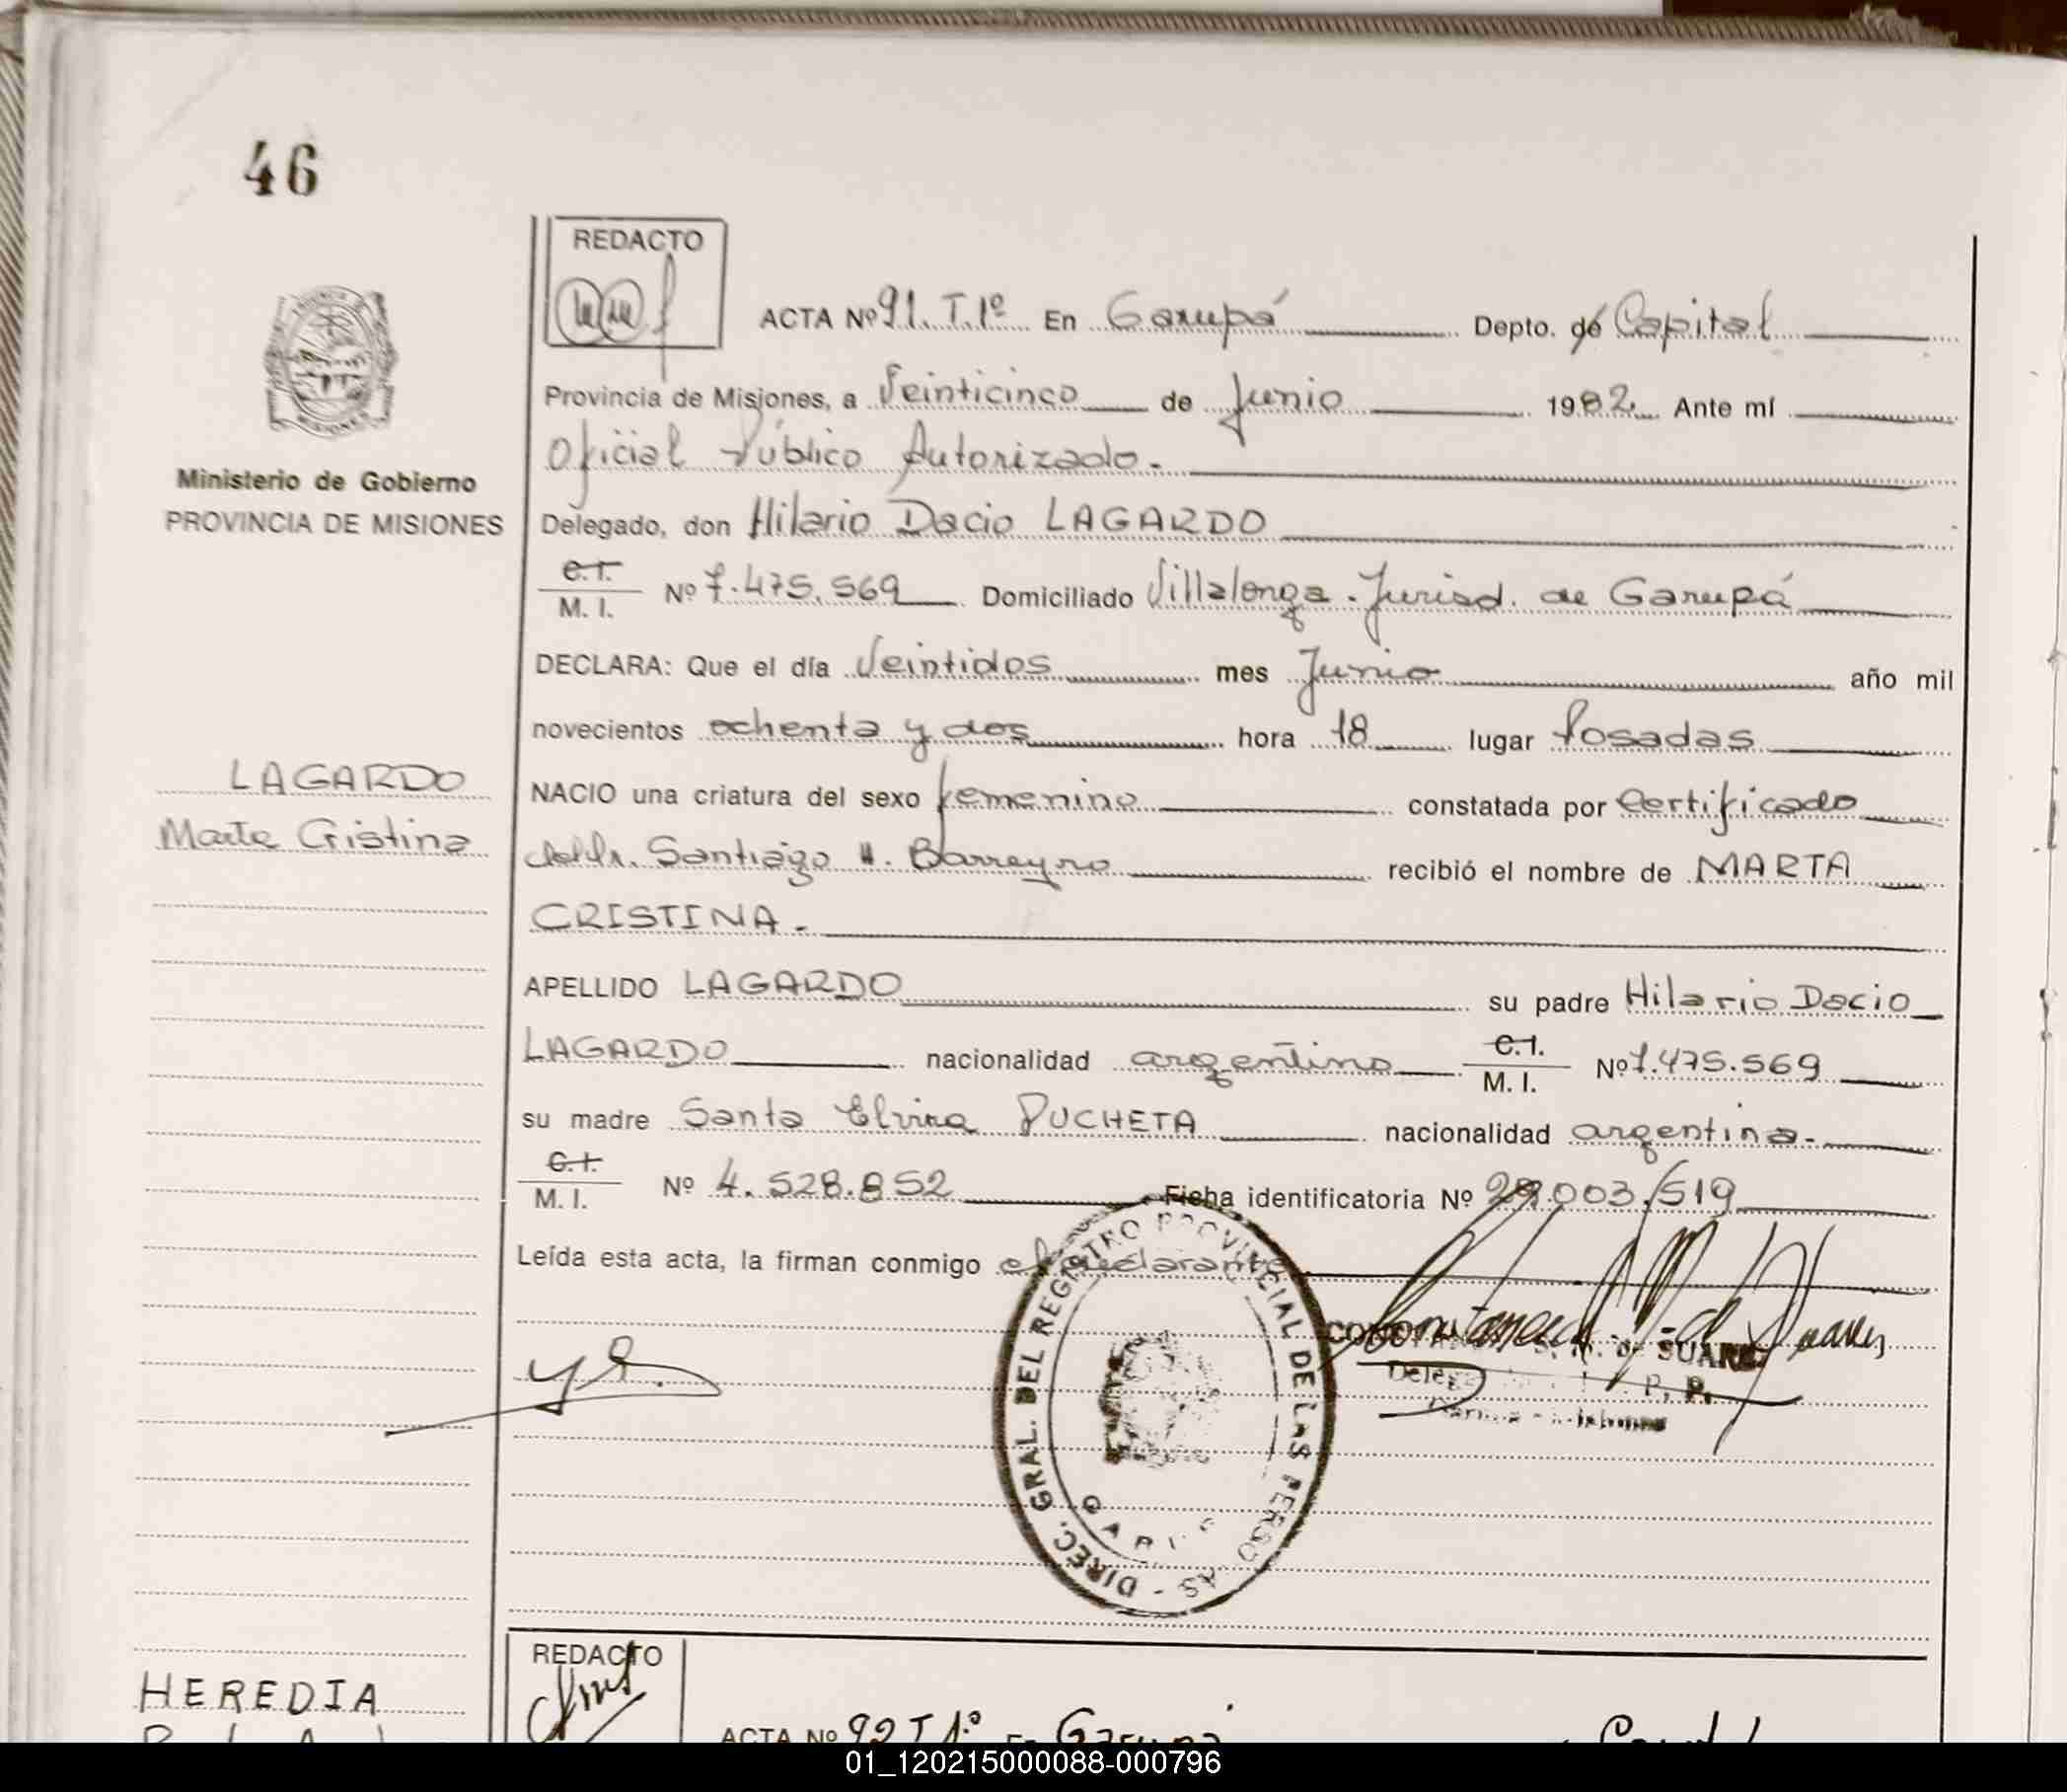 46
REDACTO
ACTA Nº 91. T. 1º En Garupá Depto. de Capital
Provincia de Misiones, a Veinticinco de Junio 1982 Ante mí
Oficial Público Autorizado.-
Ministerio de Gobierno
PROVINCIA DE MISIONES
Delegado, don Hilario Dacio LAGARDO
C.I.
M. I. Nº 7.475.569 Domiciliado Villalonga. Jurisd. de Garupá
DECLARA: Que el día Veintidos mes Junio año mil
novecientos ochenta y dos hora 18 lugar Posadas
LAGARDO
Marta Cristina
NACIO una criatura del sexo femenino constatada por Certificado
del Dr. Santiago H. Barreyro recibió el nombre de MARTA
CRISTINA.-
APELLIDO LAGARDO su padre Hilario Dacio
LAGARDO nacionalidad argentino C.I. M. I. Nº 7.475.569
su madre Santa Elvira PUCHETA nacionalidad argentina.-
C.I.
M. I. Nº 4.528.852 Ficha identificatoria Nº 29.003.519
Leída esta acta, la firman conmigo el declarante
DIREC. GRAL. DEL REGISTRO PROVINCIAL DE LAS PERSONAS
SUAREZ
HEREDIA
REDACTO
ACTA Nº 92 T 1º En Garupá
01_120215000088-000796